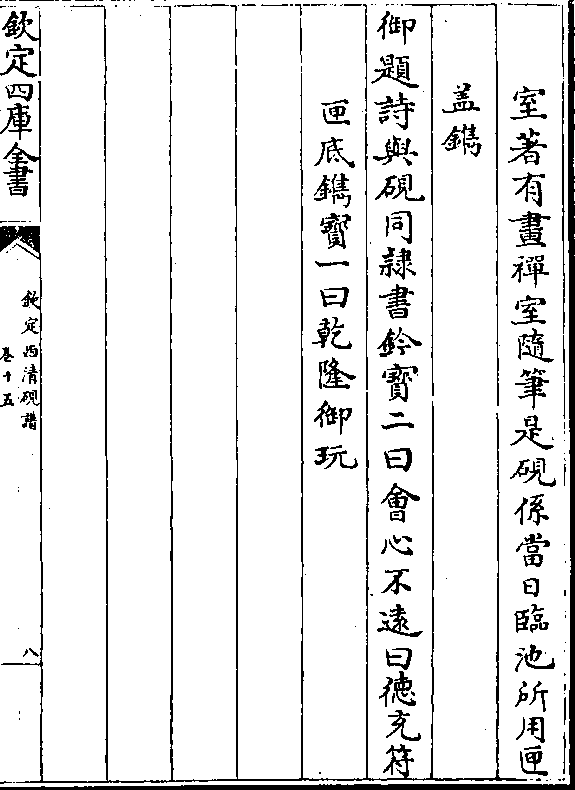 室著有畫禪室隨筆是硯係當日臨池所用匣
盖鐫
御題詩與硯同隸書鈐寳二曰會心不逺曰徳充符
匣底鐫寳一曰乾隆御玩
欽定四庫全書
欽定西清硯譜
卷十五
八